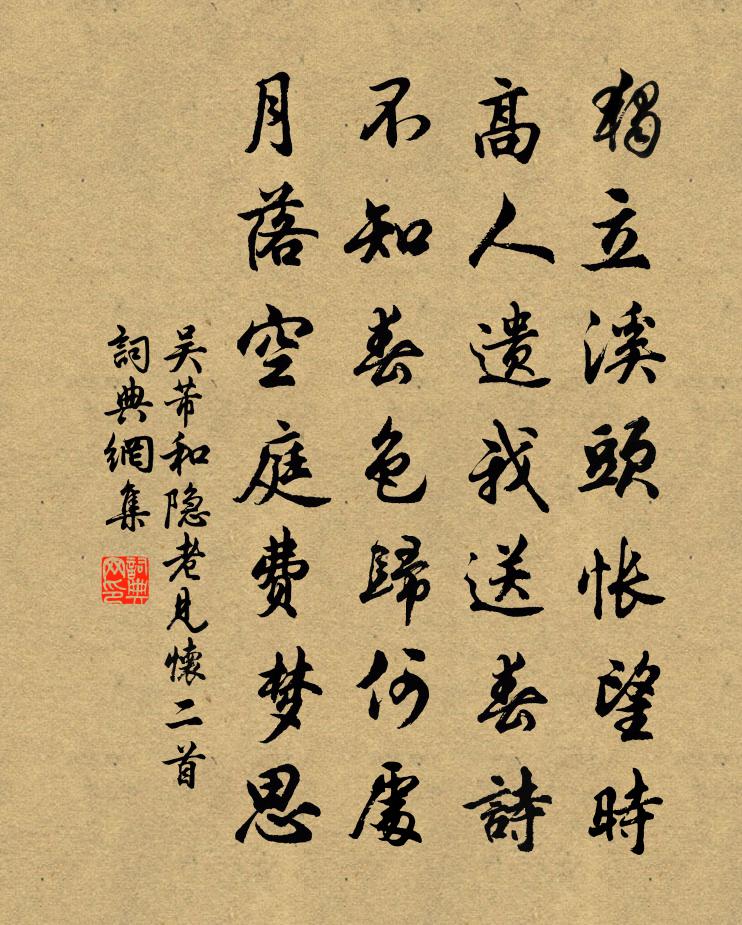 獨立溪頭悵望時
高人遺我送春詩
不知春色歸何處
月落空庭費梦思
吴芾和隐老見懷二首
詞典網集
詞典网印